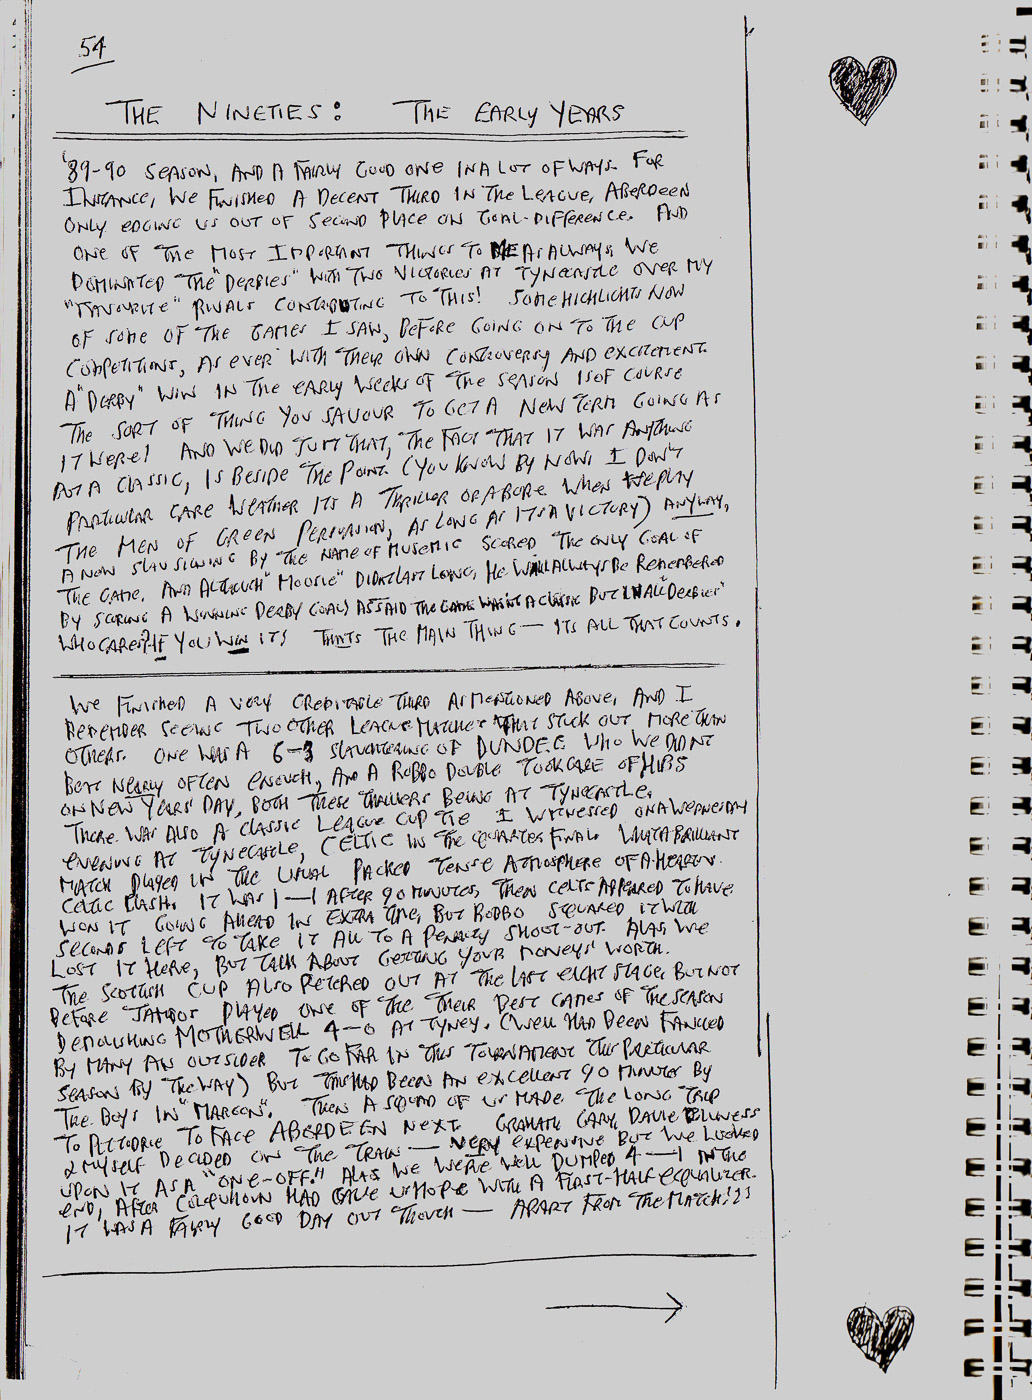 54
THE NINETIES: THE EARLY YEARS
'89-90 SEASON, AND A FAIRLY GOOD ONE IN A LOT OF WAYS. FOR
INSTANCE, WE FINISHED A DECENT THIRD IN THE LEAGUE, ABERDEEN
ONLY EDGING US OUT OF SECOND PLACE ON GOAL-DIFFERENCE. AND
ONE OF THE MOST IMPORTANT THINGS TO ME AS ALWAYS, WE
DOMINATED THE "DERBIES" WITH TWO VICTORIES AT TYNECASTLE OVER MY
"FAVOURITE" RIVALS CONTRIBUTING TO THIS! SOME HIGHLIGHTS NOW
OF SOME OF THE GAMES I SAW, BEFORE GOING ON TO THE CUP
COMPETITIONS, AS EVER WITH THEIR OWN CONTROVERSY AND EXCITEMENT.
A "DERBY" WIN IN THE EARLY WEEKS OF THE SEASON IS OF COURSE
THE SORT OF THING YOU SAVOUR TO GET A NEW TERM GOING AS
IT WERE! AND WE DID JUST THAT, THE FACT THAT IT WAS ANYTHING
BUT A CLASSIC, IS BESIDE THE POINT. (YOU KNOW BY NOW I DON'T
PARTICULAR CARE WEATHER ITS A THRILLER OR A BORE WHEN WE PLAY
THE MEN OF GREEN PERSUASION, AS LONG AS ITS A VICTORY) ANYWAY,
A NEW SLAV SIGNING BY THE NAME OF MUSEMIC SCORED THE ONLY GOAL OF
THE GAME. AND ALTHOUGH "MOOSIE" DIDNT LAST LONG, HE WILL ALWAYS BE REMEMBERED
BY SCORING A WINNING DERBY GOAL) AS SAID THE GAME WASNT A CLASSIC BUT IN ALL "DERBIES"
WHO CARES? IF YOU WIN ITS THATS THE MAIN THING — ITS ALL THAT COUNTS.
WE FINISHED A VERY CREDITABLE THIRD AS MENTIONED ABOVE, AND I
REMEMBER SEEING TWO OTHER LEAGUE MATCHES THAT STUCK OUT MORE THAN
OTHERS. ONE WAS A 6-3 SLAUGHTERING OF DUNDEE WHO WE DIDNT
BEAT NEARLY OFTEN ENOUGH, AND A ROBBO DOUBLE TOOK CARE OF HIBS
ON NEW YEARS' DAY, BOTH THESE THRILLERS BEING AT TYNECASTLE.
THERE WAS ALSO A CLASSIC LEAGUE CUP TIE I WITNESSED ON A WEDNESDAY
EVENING AT TYNECASTLE, CELTIC IN THE QUARTER FINAL. WHAT A BRILLIANT
MATCH PLAYED IN THE USUAL PACKED TENSE ATMOSPHERE OF A HEARTS
CELTIC CLASH. IT WAS 1—1 AFTER 90 MINUTES, THEN CELTS APPEARED TO HAVE
WON IT GOING AHEAD IN EXTRA TIME, BUT ROBBO SQUARED IT WITH
SECONDS LEFT TO TAKE IT ALL TO A PENALTY SHOOT-OUT. ALAS, WE
LOST IT HERE, BUT TALK ABOUT GETTING YOUR MONEYS' WORTH.
THE SCOTTISH CUP ALSO PETERED OUT AT THE LAST EIGHT STAGE. BUT NOT
BEFORE JAMBOS PLAYED ONE OF THE THEIR BEST GAMES OF THE SEASON
DEMOLISHING MOTHERWELL 4—0 AT TYNEY. (WELL HAD BEEN FANCIED
BY MANY AN OUTSIDER TO GO FAR IN THIS TOURNAMENT THIS PARTICULAR
SEASON BY THE WAY) BUT THIS HAD BEEN AN EXCELLENT 90 MINUTES BY
THE BOYS IN "MAROON". THEN A SQUAD OF US MADE THE LONG TRIP
TO PITTODRIE TO FACE ABERDEEN NEXT. GRAHAM, GARY, DAVIE
& MYSELF DECIDED ON THE TRAIN — VERY EXPENSIVE BUT WE LOOKED
UPON IT AS A "ONE-OFF." ALAS WE WERE WELL DUMPED 4—1 IN THE
END, AFTER COLQUHOUN HAD GAVE US HOPE WITH A FIRST-HALF EQUALIZER.
IT WAS A FAIRLY GOOD DAY OUT THOUGH — APART FROM THE MATCH!